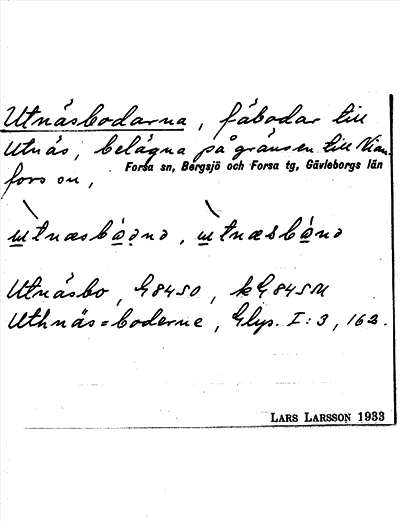 Utnäsbodarna, fäbodar till
Utnäs, belägna på gränsen till Vian-
Forsa sn, Bergsjö och Forsa tg, Gävleborgs län
fors sn,
Utnäsbo, G 84 SO, kG 84 SU
Uthnäs=boderne, Glys. I:3, 162.
LARS LARSSON 1933